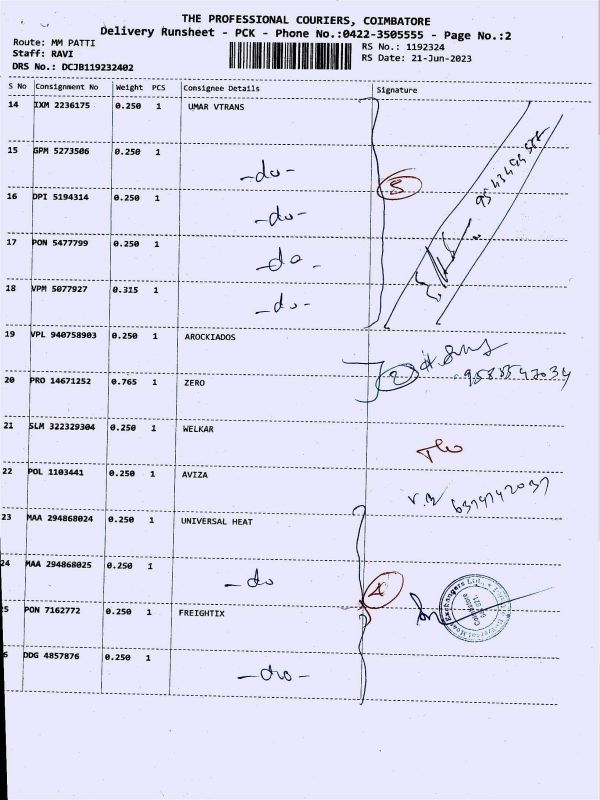 THE PROFESSIONAL COURIERS, COIMBATORE
Delivery Runsheet - PCK - Phone No.:0422-3505555 - Page No.:2
Route: MM PATTI
Staff: RAVI
DRS No.: DCJB119232402
RS No.: 1192324
RS Date: 21-Jun-2023
S No Consignment No Weight PCS Consignee Details Signature
14 IXM 2236175 0.250 1 UMAR VTRANS
15 GPM 5273506 0.250 1 -do-
16 DPI 5194314 0.250 1 -do-
17 PON 5477799 0.250 1 -do-
18 VPM 5077927 0.315 1 -do-
5
19 VPL 940758903 0.250 1 AROCKIADOS
20 PRO 14671252 0.765 1 ZERO
2
21 SLM 322329304 0.250 1 WELKAR
22 POL 1103441 0.250 1 AVIZA
23 MAA 294868024 0.250 1 UNIVERSAL HEAT
24 MAA 294868025 0.250 1 -do
4
25 PON 7162772 0.250 1 FREIGHTIX
6 DDG 4857876 0.250 1 -do-
Universal Heat Exchangers Ltd.
Coimbatore